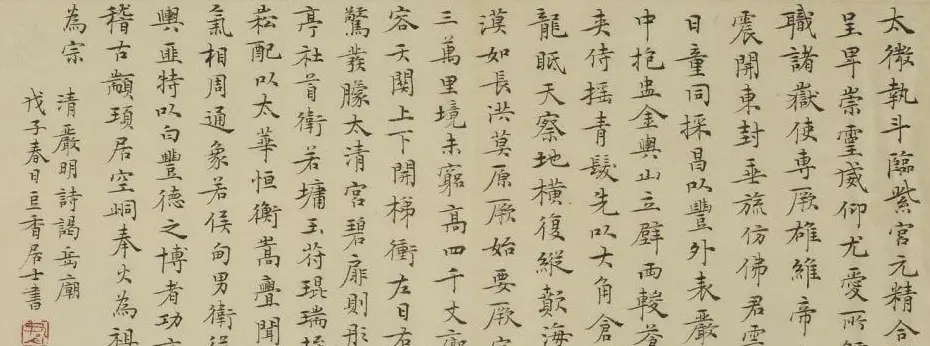 太微執斗臨紫宮元精合
呈昇崇靈威仰尤愛所
職諸嶽使專厥雄維帝
震開東封垂旒仿佛君雲
日童同採昌以豐外表嚴
中抱盅金輿山立壁兩輳
夾侍搖青髮先以大角倉
龍眡天察地橫復縱顛海
漠如長洪莫原厥始要厥
三萬里境未窮高四千丈
容天關上下開梯衝左日右
驚發朦太清宮碧扉則彤
亭社首衛若墉玉符琨瑞
崧配以太華恒衡嵩疊聞
氣相周通象若侯甸男衛
輿匪特以向豐德之博者功
稽古顓頊居空峒奉火為祖
為宗
清嚴明詩謁岳廟
戊子春日巨香居士書